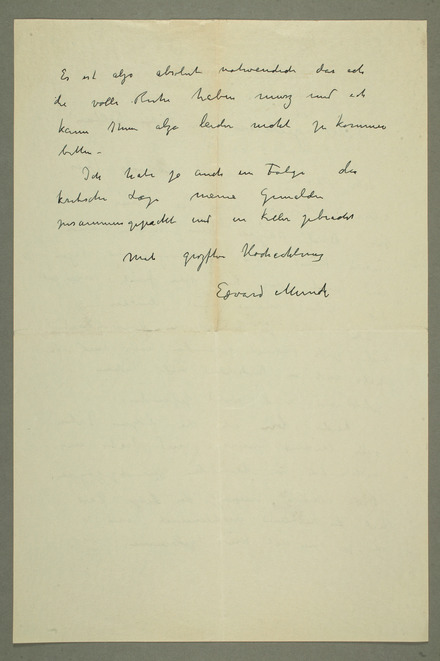 Es ist also absolut notwendich das ich
die volle Ruhe haben musz und ich
kann Ihnen also leider nicht zu kommen
bitten –
Ich habe ja auch in Folge der
kritischen Lage meine Gemelde
zusammengepackt und in Keller gebracht
Mit grösster Hochachtung
Edvard Munch